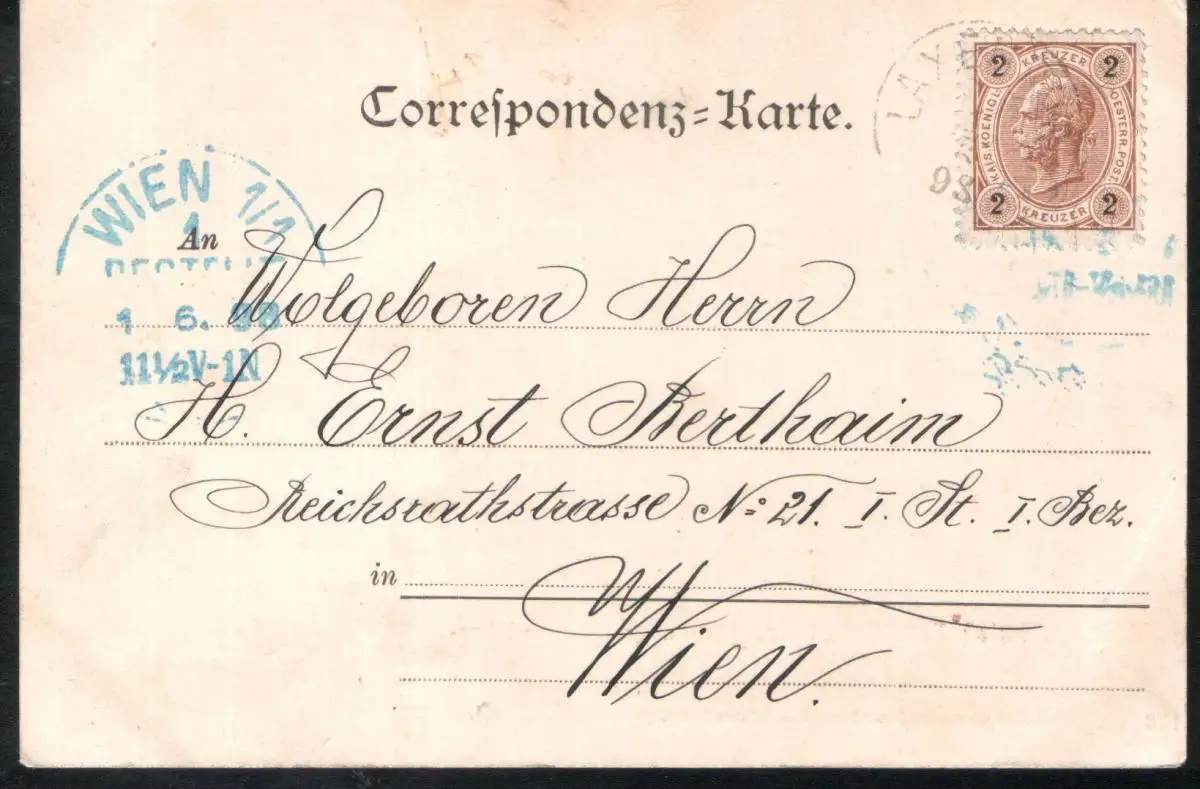 Correspondenz-Karte.
2 KREUZER 2
KAIS. KOENIGL. OESTERR. POST.
2 KREUZER 2
98
WIEN 1/1
1
BESTELLT
1 6. 98
11½V-1N
An
Wolgeboren Herrn
H. Ernst Berthaim
Reichsrathstrasse No: 21. I. St. I. Bez.
in
Wien.